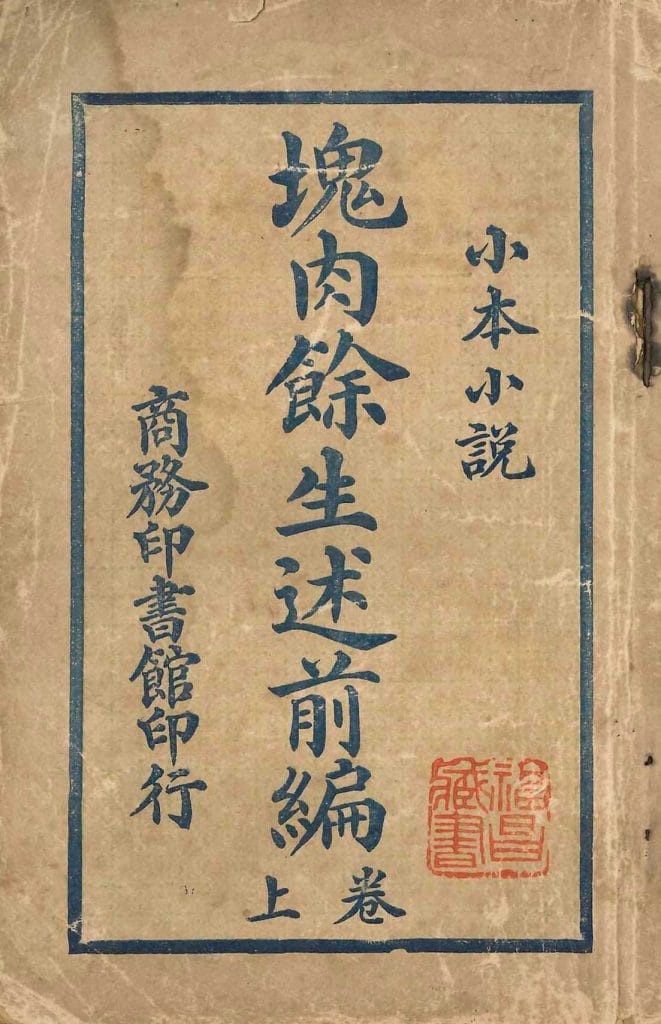 小本小説
塊肉餘生述前編
卷上
商務印書館印行
福昌
藏書